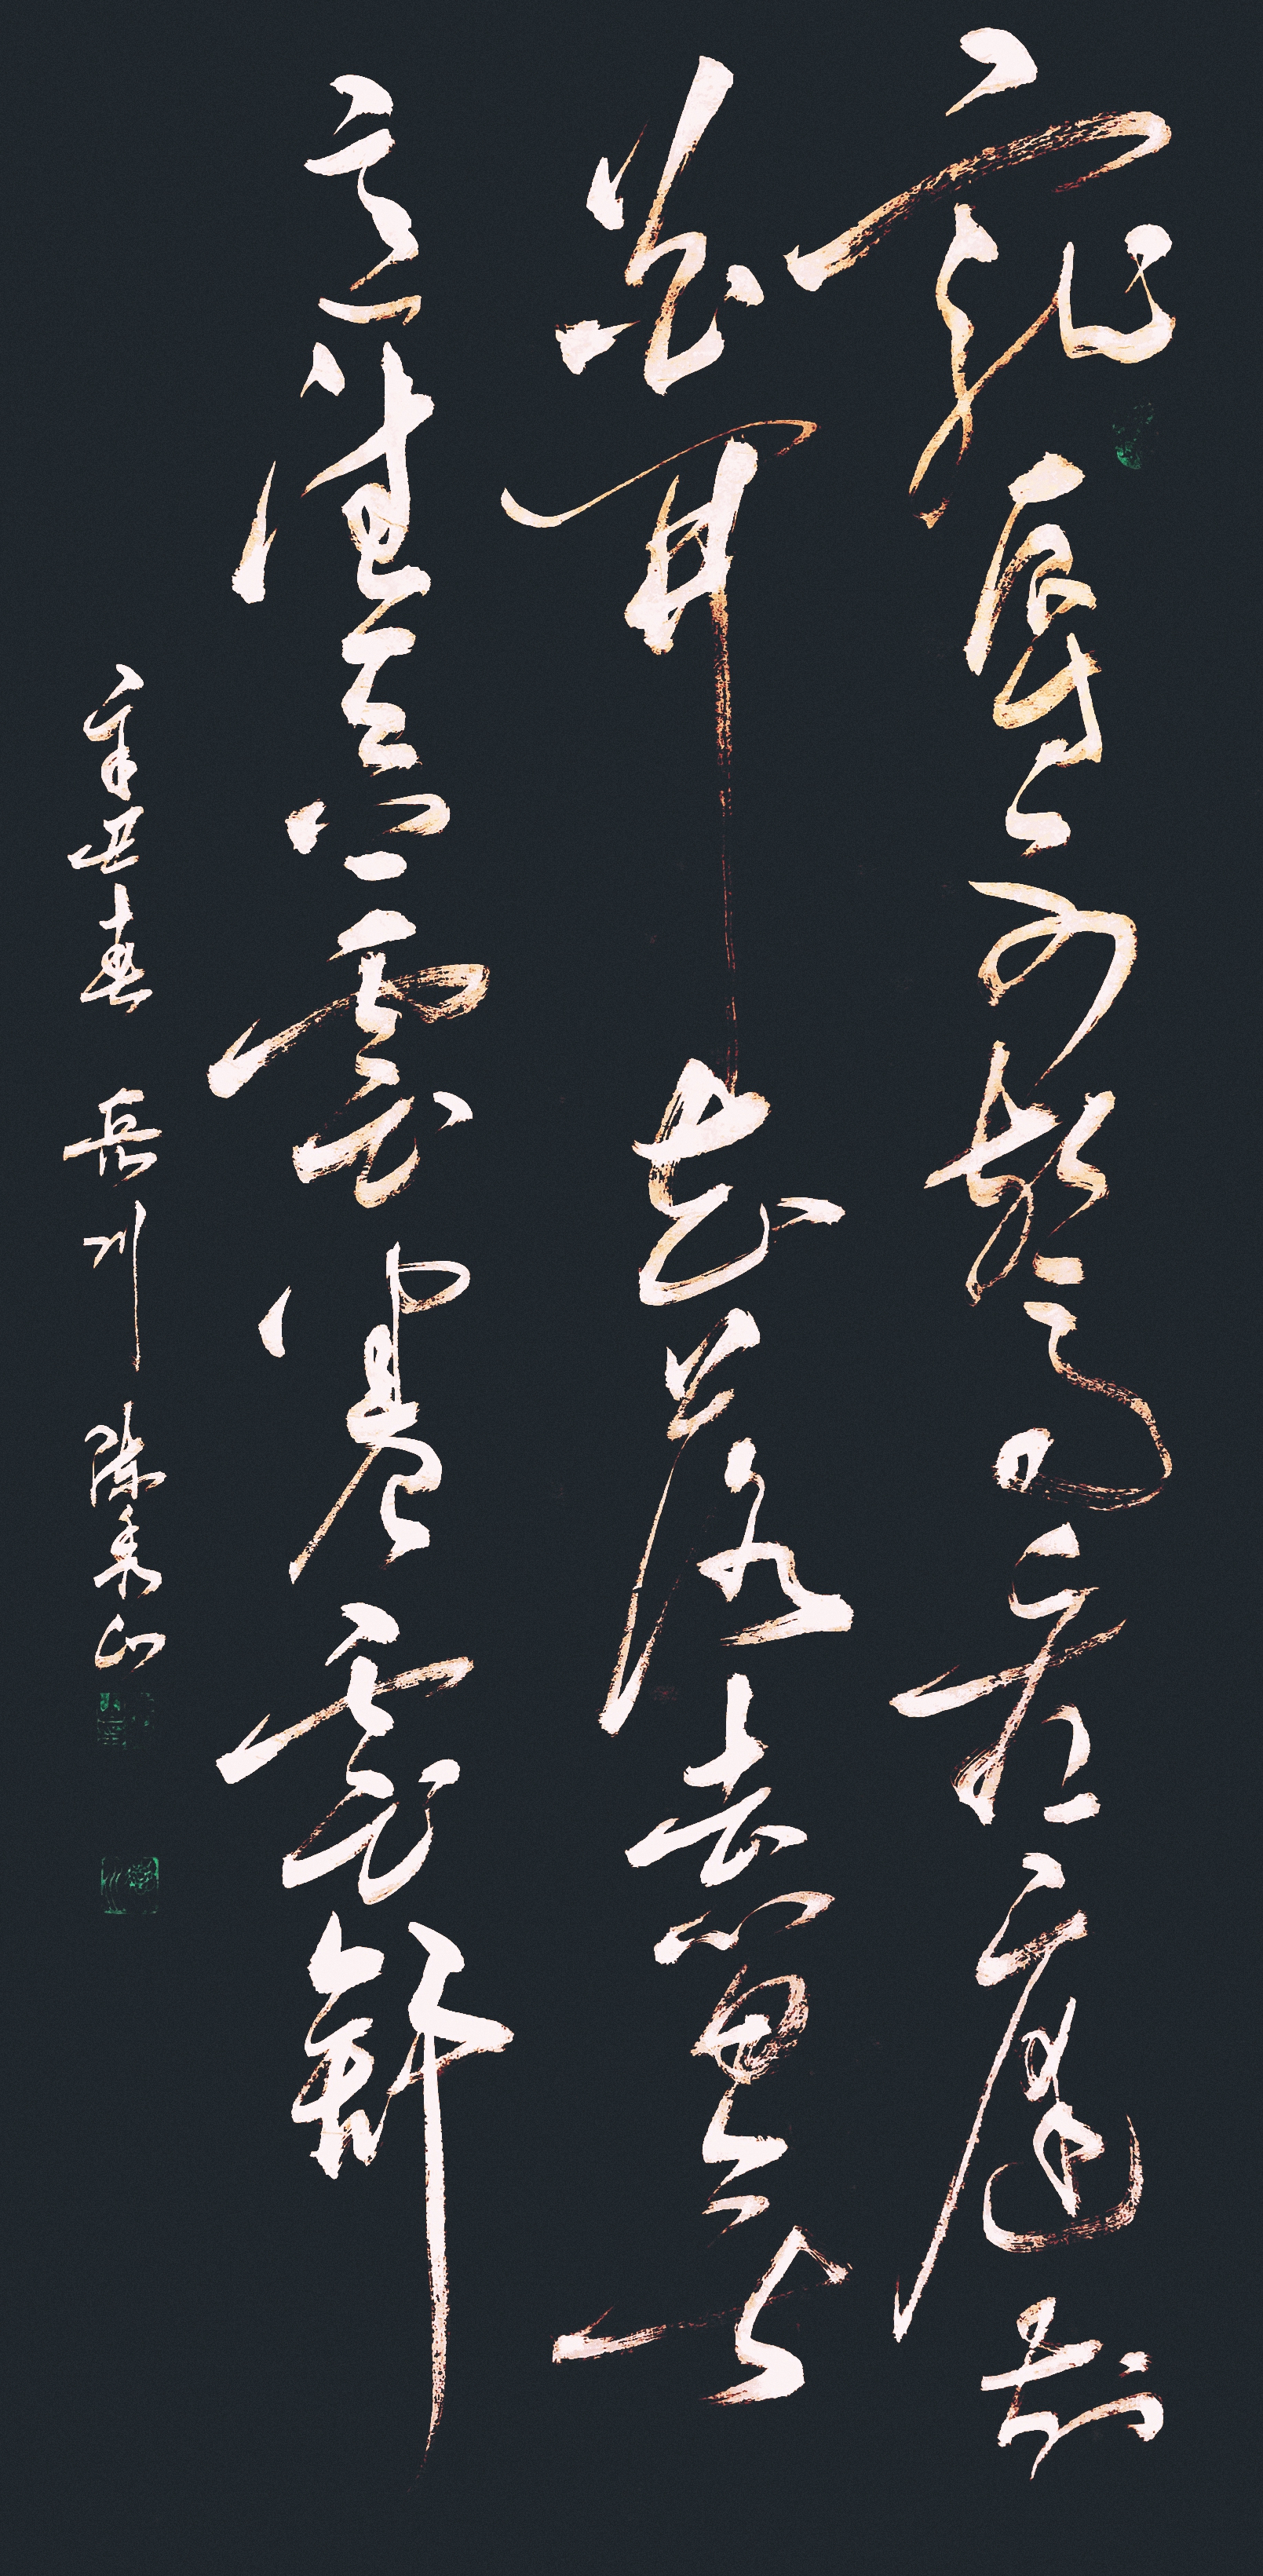 宠辱不惊看庭前
花开花落去留无
意望天空云卷云舒
辛丑春 岳川 陈秉山